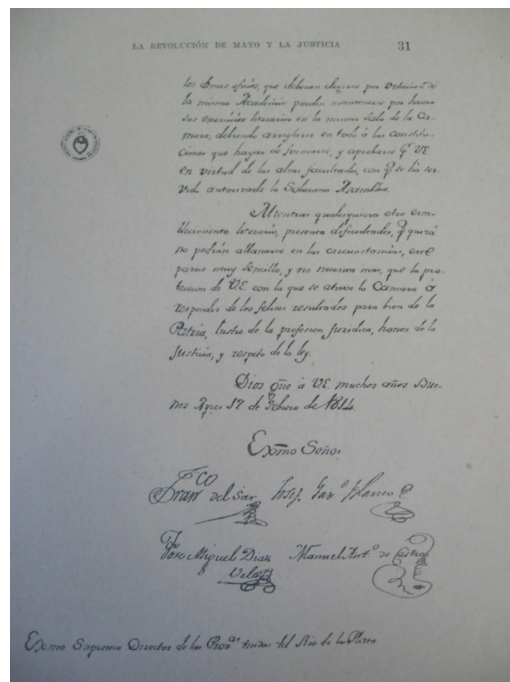 LA REVOLUCIÓN DE MAYO Y LA JUSTICIA 31
los demas oficios, que deberan elegirse por votacion de
la misma Academia pueden mantenerse por hacer
sus exercicios literarios en la misma Sala de la Ca-
mara, debiendo arreglarse en todo á las constitu-
ciones que hayan de formarse, y aprobarse por VE
en virtud de las altas facultades, con q̃ se ha ser-
vido autorizarle la Soberana Asamblea.
Mientras qualesquiera otro esta-
blecimiento literario, presenta dificultades, q̃ quizá
no podrán allanarse en las circunstancias, este
parece muy sencillo, y no necesita mas, que la pro-
teccion de VE con la que se atreve la Camara á
responder de los felices resultados para bien de la
Patria, lustre de la profesion Juridica, honor de la
Justicia, y respeto de la ley.
Dios gũe á VE. muchos años Bue-
nos Ayres 17 de Febrero de 1814.
Exmo Señor
Franco del Sar Josef Garª
Miguel Diaz Manuel Antº de Castro
Velez
Exmo Supremo Director de las Provª Unidas del Rio de la Plata